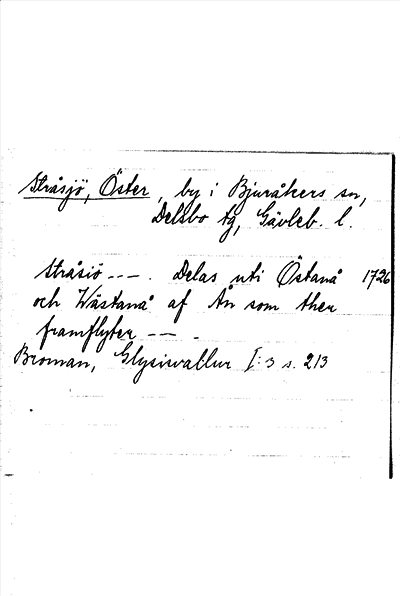 Stråsjö, Öster, by i Bjuråkers sn,
Delsbo tg, Gävleb. l.
Stråsiö ---. Delas uti Östanå 1726
och Wästanå af Ån som ther
framflyter ---.
Broman, Glysisvallur I:3 s. 213